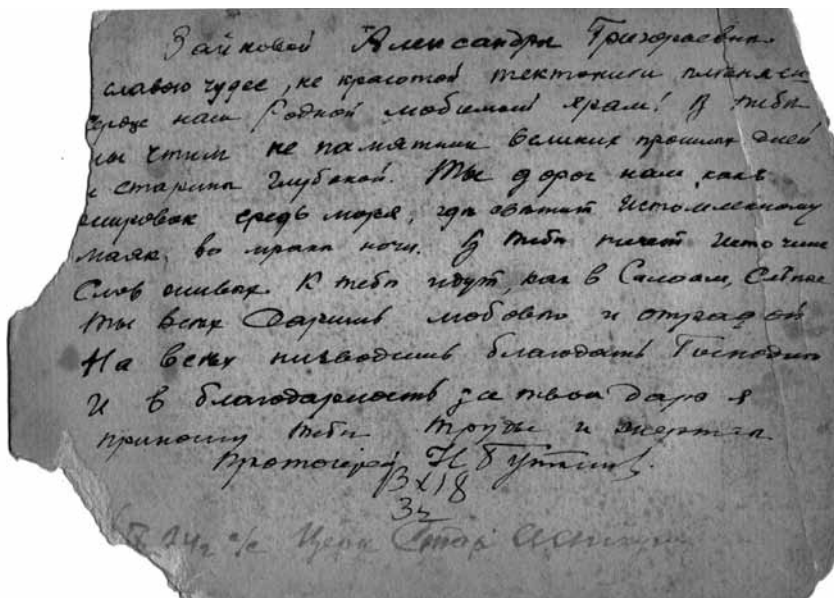 Зайковой Александры Григораевны
славою чудес, не красотой тектоники пленяен
сердце наш Родной любимый храм! В тебѣ
мы чтим не памятник великих прошлых дней
и старины глубокой. Ты дорог нам какъ
островок средь моря, гдѣ свѣтит истомленному
маяк, во мракѣ ночи. В тебѣ течет источник
Слов живых. К тебѣ идут, как в Силоам, Слѣпые
Ты всѣх Даришь любовью и отрадой
На всѣх низводишь благодать Господню
И в благодарность за твои дары я
приношу тебѣ труды и жертвы
протоиерей Н
13 XI 18
34
Церк Стар